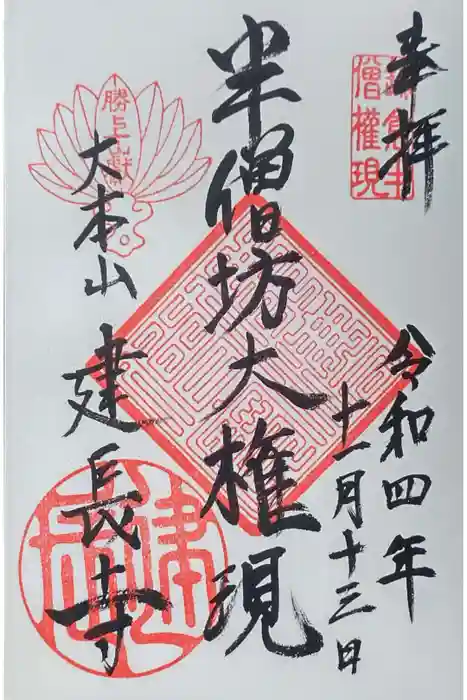 奉拝
僧權現
令和四年
十一月十三日
半僧坊大権現
勝上嶽
大本山 建長寺
建長